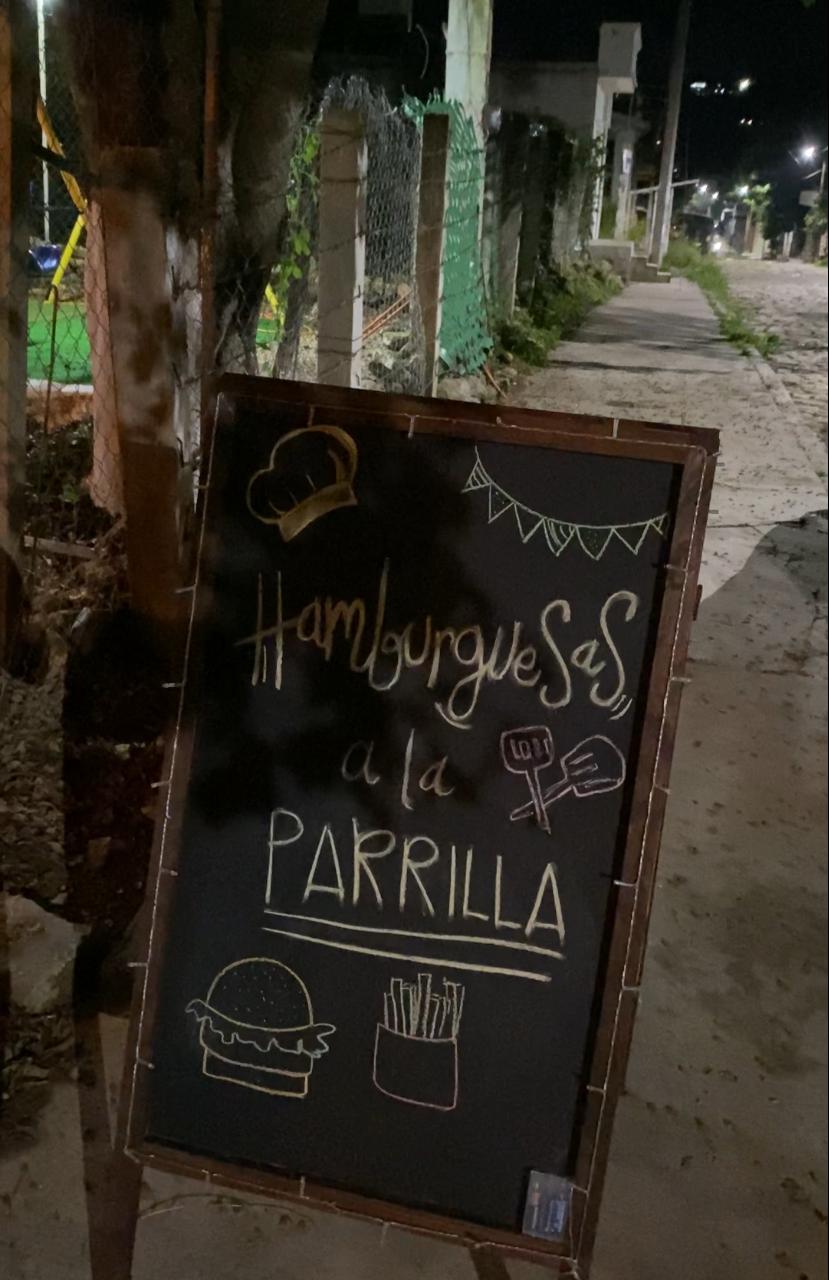 HamburgueSaS
a la
PARRILLA